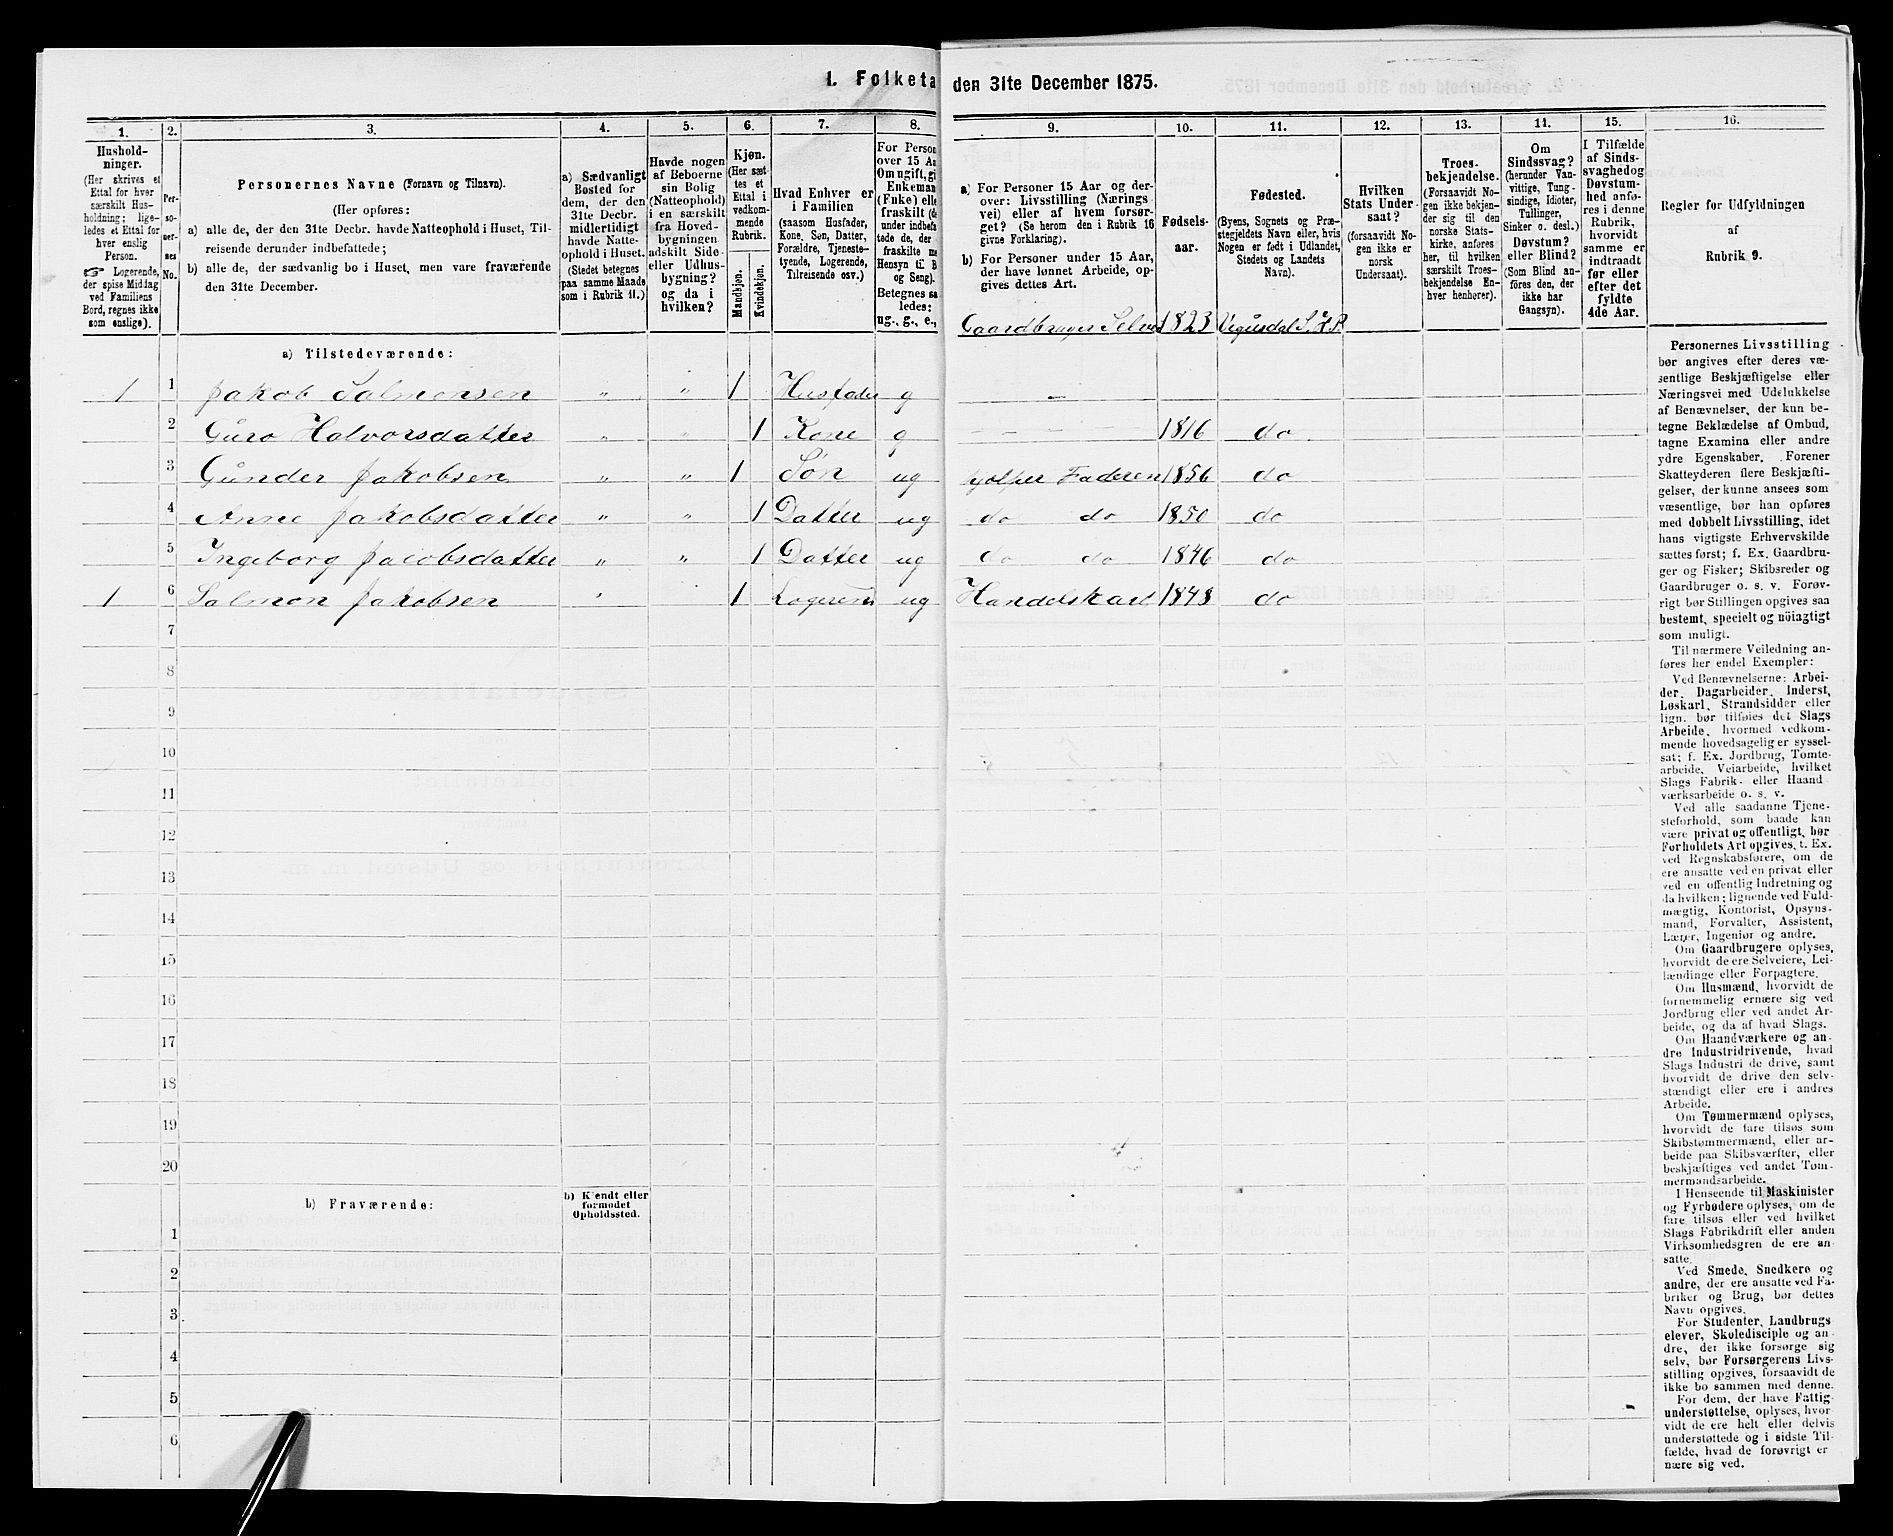 1. Folketa den 31te December 1875.
1. 2. 3. 4. 5. 6. 7. 8. 9. 10. 11. 12. 13. 14. 15. 16.
Hushold-
ninger.
(Her skrives et
Ettal for hver
særskilt Hus-
holdning; lige-
ledes et Ettal for
hver enslig
Person.
☞ Logerende,
der spise Middag
ved Familiens
Bord, regnes ikke
som enslige).
Per-
so-
ner-
nes
No.
Personernes Navne (Fornavn og Tilnavn).
(Her opføres:
a) alle de, der den 31te Decbr. havde Natteophold i Huset, Til-
reisende derunder indbefattede;
b) alle de, der sædvanlig bo i Huset, men vare fraværende
den 31te December.
a) Sædvanligt
Bosted for
dem, der den
31te Decbr.
midlertidigt
havde Natte-
ophold i Huset.
(Stedet betegnes
paa samme Maade
som i Rubrik 11.)
Havde nogen
af Beboerne
sin Bolig
(Natteophold)
i en særskilt
fra Hoved-
bygningen
adskilt Side-
eller Udhus-
bygning?
og da i
hvilken?
Kjøn.
(Her sæt-
tes et
Ettal i
vedkom-
mende
Rubrik.
Mandkjøn.
Kvindekjøn.
Hvad Enhver er
i Familien
(saasom Husfader,
Kone, Søn, Datter,
Forældre, Tjeneste-
tyende, Logerende,
Tilreisende osv.)
For Person
over 15 Aa
Om ugift, gi
Enkeman
(Enke) elle
fraskilt (d
under indbefa
tede de, der
fraskilte m
Hensyn til B
og Seng).
Betegnes sa
ledes:
ug., g., e.,
a) For Personer 15 Aar og der-
over: Livsstilling (Nærings
vei) eller af hvem forsør-
get? (Se herom den i Rubrik 16
givne Forklaring).
b) For Personer under 15 Aar,
der have lønnet Arbeide, op-
gives dettes Art.
Fødsels-
aar.
Fødested.
(Byens, Sognets og Præ-
stegjeldets Navn eller, hvis
Nogen er født i Udlandet,
Stedets og Landets
Navn).
Hvilken
Stats Under-
saat?
(forsaavidt No-
gen ikke er
norsk
Undersaat).
Troes-
bekjendelse.
(Forsaavidt No-
gen ikke bekjen-
der sig til den
norske Stats-
kirke, anføres
her, til hvilken
særskilt Troes-
bekjendelse En-
hver henhører).
Om
Sindssvag?
(herunder Van-
vittige, Tung-
sindige, Idioter,
Tullinger,
Sinker o. desl.)
Døvstum?
eller Blind?
(Som Blind an-
føres den, der
ikke har
Gangsyn).
I Tilfælde
af Sinds-
svaghed og
Døvstum-
hed anfø-
res i denne
Rubrik,
hvorvidt
samme er
indtraadt
før eller
efter det
fyldte
4de Aar.
Regler for Udfyldningen
af
Rubrik 9.
a) Tilstedeværende:
Gaardbruger Selv 1823 Vegusdal S. & P.
1 1 Jakob Salmonsen " " 1 Husfader g
2 Guro Halvorsdatter " " 1 Kone g 1816 do
3 Gunder Jakobsen " " 1 Søn ug hjelper Faderen 1856 do
4 Anne Jakobsdatter " " 1 Datter ug do do 1850 do
5 Ingeborg Jacobsdatter " " 1 Datter ug do do 1846 do
1 6 Salmon Jakobsen " 1 Logerend ug Handelskarl 1848 do
7
8
9
10
11
12
13
14
15
16
17
18
19
20
b) Fraværende:
b) Kjendt eller
formodet
Opholdssted.
1
2
3
4
5
6
Personernes Livsstilling
bør angives efter deres væ-
sentlige Beskjæftigelse eller
Næringsvei med Udelukkelse
af Benævnelser, der kun be-
tegne Beklædelse af Ombud,
tagne Examina eller andre
ydre Egenskaber. Forener
Skatteyderen flere Beskjæfti-
gelser, der kunne ansees som
væsentlige, bør han opføres
med dobbelt Livsstilling, idet
hans vigtigste Erhvervskilde
sættes først; f. Ex. Gaardbru-
ger og Fisker; Skibsreder og
Gaardbruger o. s. v. Forøv-
rigt bør Stillingen opgives saa
bestemt, specielt og nöiagtigt
som muligt.
Til nærmere Veiledning an-
føres her endel Exempler:
Ved Benævnelserne: Arbei-
der, Dagarbeider, Inderst,
Løskarl, Strandsidder eller
lign. bør tilføies det Slags
Arbeide, hvormed vedkom-
mende hovedsagelig er syssel-
sat; f. Ex. Jordbrug, Tomte-
arbeide, Veiarbeide, hvilket
Slags Fabrik- eller Haand
værksarbeide o. s. v.
Ved alle saadanne Tjene-
steforhold, som baade kan
være privat og offentligt, bør
Forholdets Art opgives, t. Ex.
ved Regnskabsførere, om de
ere ansatte ved en privat eller
ved en offentlig Indretning og
da hvilken; lignende ved Fuld-
mægtig, Kontorist, Opsyns-
mand, Forvalter, Assistent,
Lærer, Ingeniør og andre.
Om Gaardbrugere oplyses,
hvorvidt de ere Selveiere, Lei-
lændinge eller Forpagtere.
Om Husmænd, hvorvidt de
fornemmelig ernære sig ved
Jordbrug eller ved andet Ar-
beide, og da af hvad Slags.
Om Haandværkere og an-
dre Industridrivende, hvad
Slags Industri de drive, samt
hvorvidt de drive den selv-
stændigt eller ere i andres
Arbeide.
Om Tømmermænd oplyses,
hvorvidt de fare tilsøs som
Skibstømmermænd, eller ar-
beide paa Skibsværfter, eller
beskjæftiges ved andet Tøm-
mermandsarbeide.
I Henseende til Maskinister
og Fyrbødere oplyses, om de
fare tilsøs eller ved hvilket
Slags Fabrikdrift eller anden
Virksomhedsgren de ere an-
satte.
Ved Smede, Snedkere og
andre, der ere ansatte ved Fa-
briker og Brug, bør dettes
Navn opgives.
For Studenter, Landbrugs
elever, Skoledisciple og an-
dre, der ikke forsørge sig
selv, bør Forsørgerens Livs-
stilling opgives, forsaavidt de
ikke bo sammen med denne.
For dem, der have Fattig-
understøttelse, oplyses, hvor-
vidt de ere helt eller delvis
understøttede og i sidste Til-
fælde, hvad de forøvrigt er
nære sig ved.